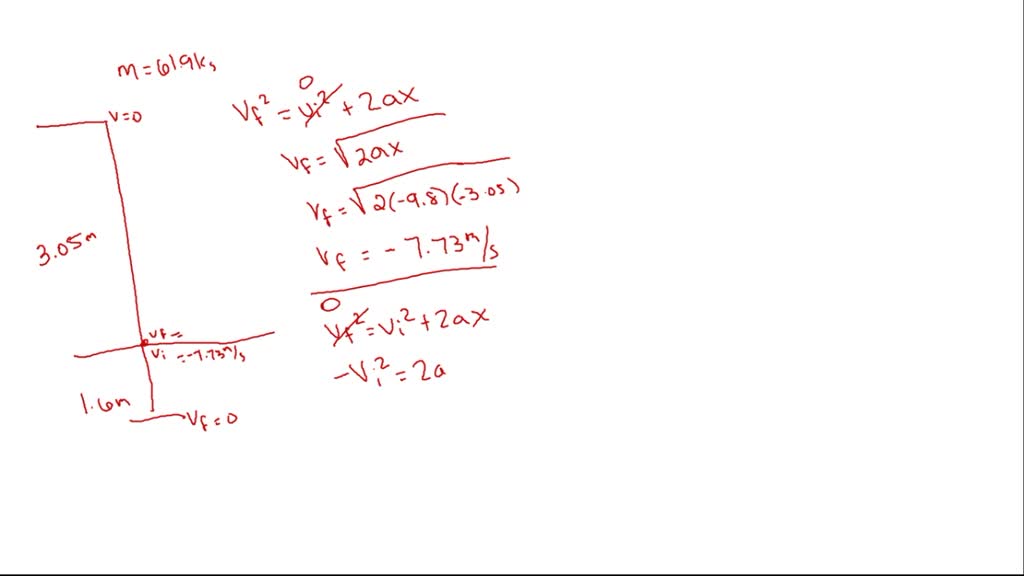 m=61.9kg
v=0
3.05m
vf=
vi=-7.73m/s
1.6m
Vf=0
0
Vf²=vi²+2ax
vf=√2ax
Vf=√2(-9.8)(-3.05)
Vf=-7.73m/s
0
Vf²=Vi²+2ax
-Vi²=2a